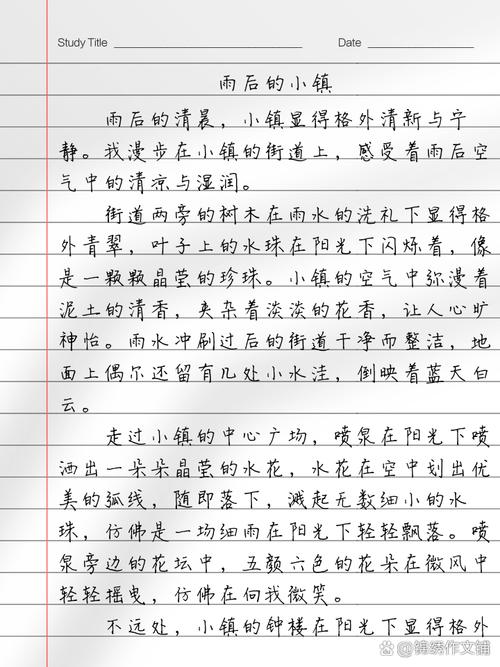 Study Title
Date
雨后的小镇
雨后的清晨，小镇显得格外清新与宁
静。我漫步在小镇的街道上，感受着雨后空
气中的清凉与湿润。
街道两旁的树木在雨水的洗礼下显得格
外青翠，叶子上的水珠在阳光下闪烁着，像
是一颗颗晶莹的珍珠。小镇的空气中弥漫着
泥土的清香，夹杂着淡淡的花香，让人心旷
神怡。雨水冲刷过后的街道干净而整洁，地
面上偶尔还留有几处小水洼，倒映着蓝天白
云。
走过小镇的中心广场，喷泉在阳光下喷
洒出一朵朵晶莹的水花，水花在空中划出优
美的弧线，随即落下，溅起无数细小的水
珠，仿佛是一场细雨在阳光下轻轻飘落。喷
泉旁边的花坛中，五颜六色的花朵在微风中
轻轻摇曳，仿佛在向我微笑。
不远处，小镇的钟楼在阳光下显得格外
锦绣作文铺